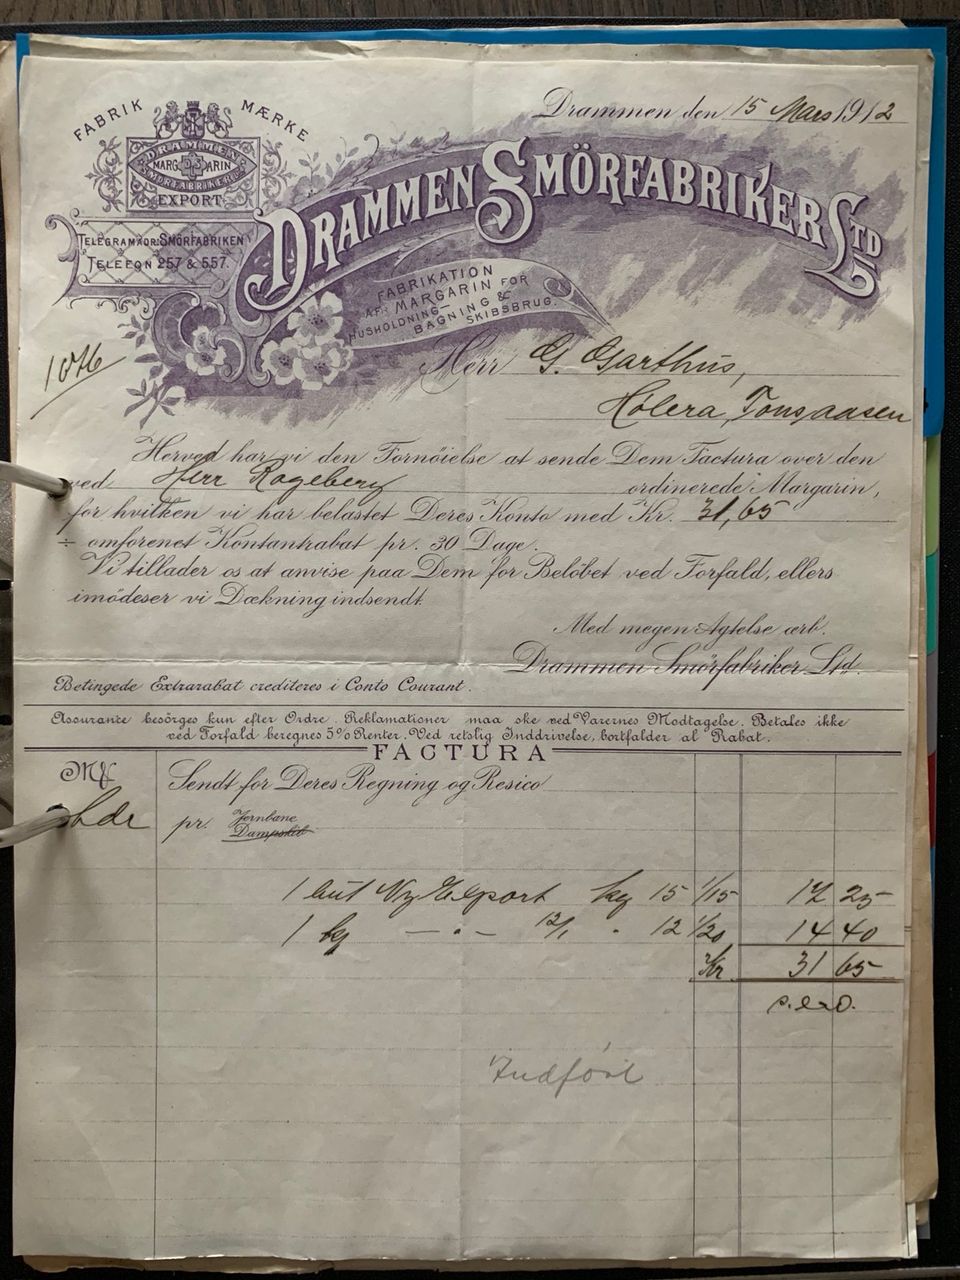 Drammen den 15 Mars 1912
FABRIK MÆRKE
DRAMMEN
MARG DS ARIN
SMØRFABRIKER LTD
EXPORT
DRAMMEN SMÖRFABRIKER LTD
TELEGRAMADR: SMÖRFABRIKEN
TELEFON 257 & 557.
FABRIKATION
AF MARGARIN FOR
HUSHOLDNING-
BAGNING &
SKIBSBRUG.
1076
Herr G. Garthus,
Hølera, Tonsaasen
Herved har vi den Fornöielse at sende Dem Factura over den
ved Herr Rogeberg ordinerede Margarin,
for hvilken vi har belastet Deres Konto med Kr. 31,65
÷ omforenet Kontantrabat pr. 30 Dage.
Vi tillader os at anvise paa Dem for Belöbet ved Forfald, ellers
imödeser vi Dækning indsendt.
Med megen Agtelse ærb.
Drammen Smörfabriker Ltd.
Betingede Extrarabat crediteres i Conto Courant.
Assurance besörges kun efter Ordre. Reklamationer maa ske ved Varernes Modtagelse. Betales ikke
ved Forfald beregnes 5% Renter. Ved retslig Inddrivelse, bortfalder al Rabat.
FACTURA
Mk Sendt for Deres Regning og Resico
pr. Jernbane
Dampskib
1 Ny Export kg 15 1/15 17 25
1 — " — 12/1 " 12 1/20 14 40
Kr 31 65
Indført